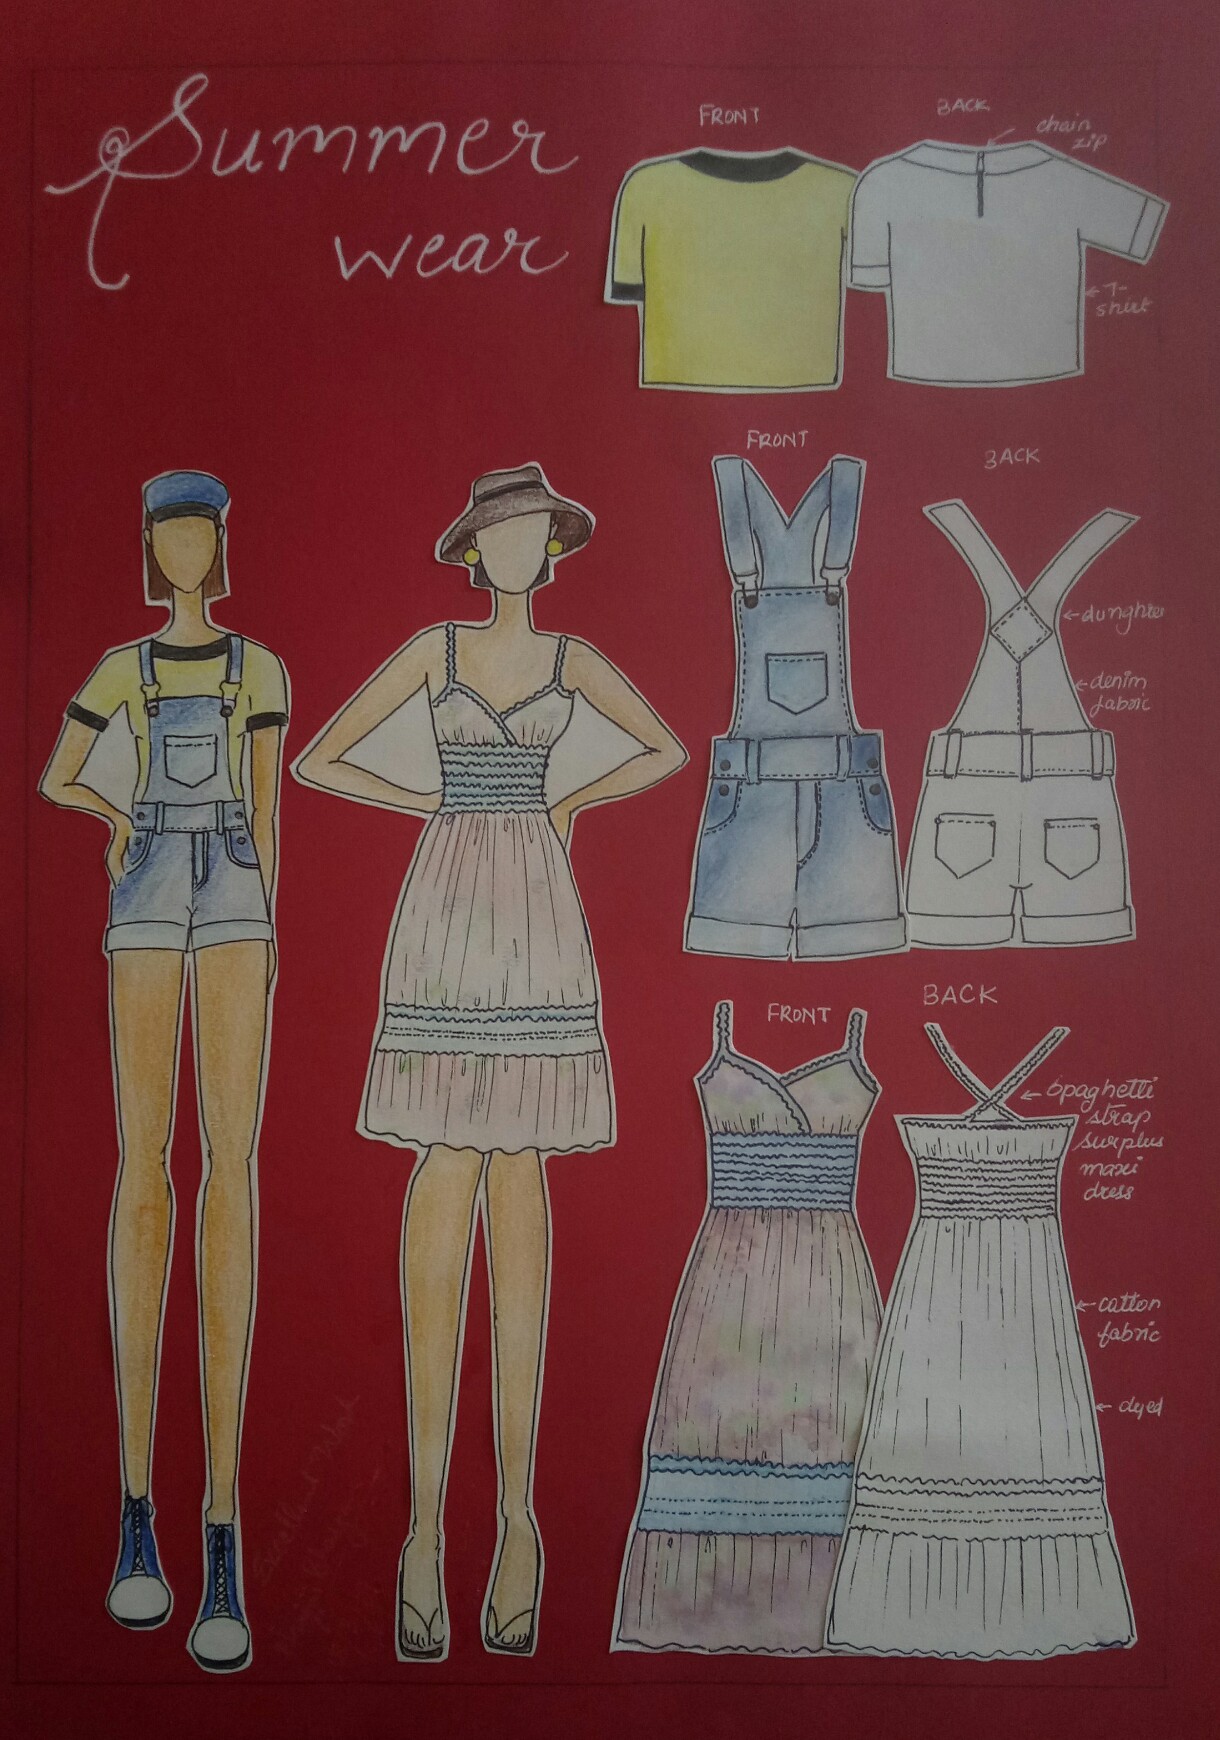 Summer
wear
FRONT
BACK
chain
zip
T-
shirt
FRONT
BACK
denim
fabric
FRONT
BACK
spaghetti
strap
surplus
maxi
dress
cotton
fabric
dyed